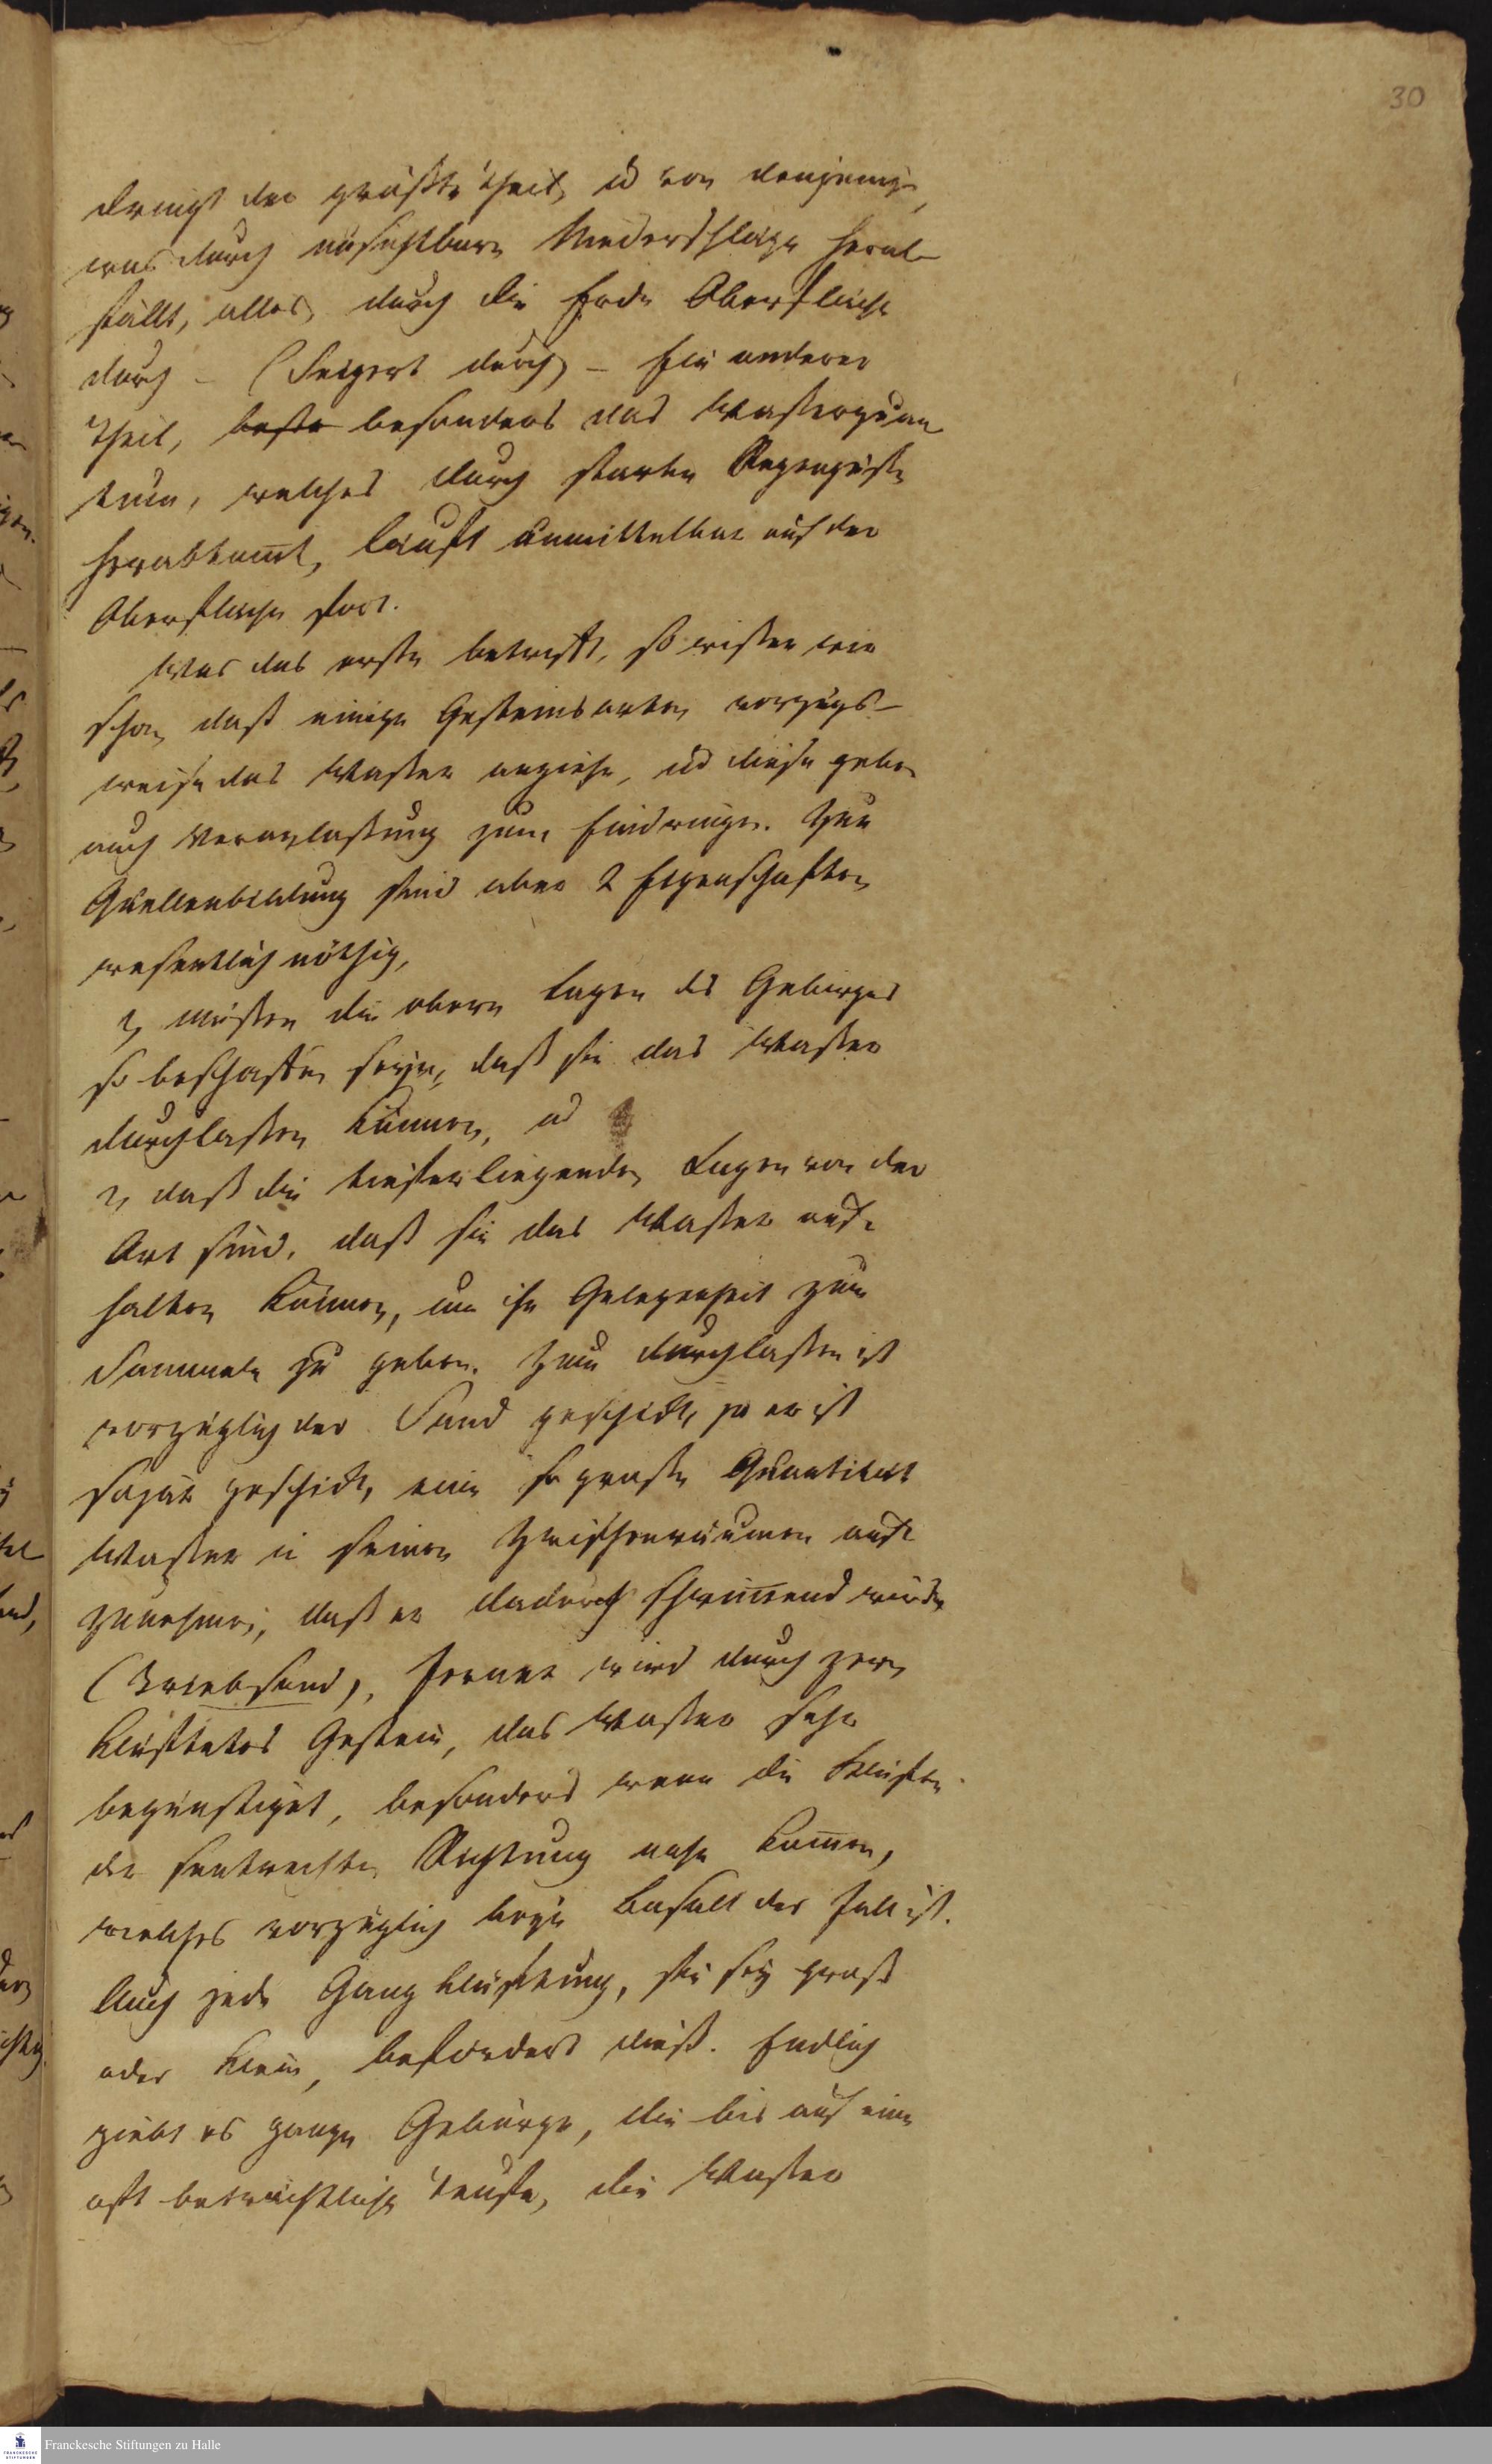 30
dringt der größte Theil, u von denjenige,
was durch unsichtbare Niederschläge herab
fällt, alles, durch die Erde Oberfläche
durch – (Seigert durch) – Ein anderer
Theil, beste besonders das Waßerquan
tum, welches durch starke Regengüße
herabkom̄t, läuft unmittelbar auf der
Oberfläche fort.
Was das erste betrifft, so wißen wir
schon, daß einige Gesteinsarten vorzugs-
weise das Waßer anziehe, und diese geben
auch Veranlaßung zum Eindringen. Zur
Quellenbildung sind aber 2 Eigenschaften
wesentlich nöthig,
1, müßen die obern Lagen des Gebirges
so beschaffen seyn, daß sie das Waßer
durchlaßen können, u
2, daß die tieferliegenden Lagen von der
Art sind, daß sie das Waßer auf-
halten können, um ihr Gelegenheit zum
Sammeln zu geben. Zum durchlaßen ist
vorzüglich der Sand geschickt, ja er ist
sogar geschickt, eine so große Quantität
Waßer in seinen Zwischenräumen auf
zunehmen, daß er dadurch schwim̄end wird,
(Triebsand), ferner wird durch zer
klüftetes Gestein, das Waßer sehr
begünstiget, besonders wenn die Klüfte
der senkrechten Richtung nahe kom̄en,
welches vorzüglich beym Basalt der Fall ist.
Auch jede Gang klüftung, sie sey groß
oder klein, befördert dieß. Endlich
giebt es ganze Gebürge, die bis auf eine
oft beträchtliche Teufe, die Waßer
Franckesche Stiftungen zu Halle